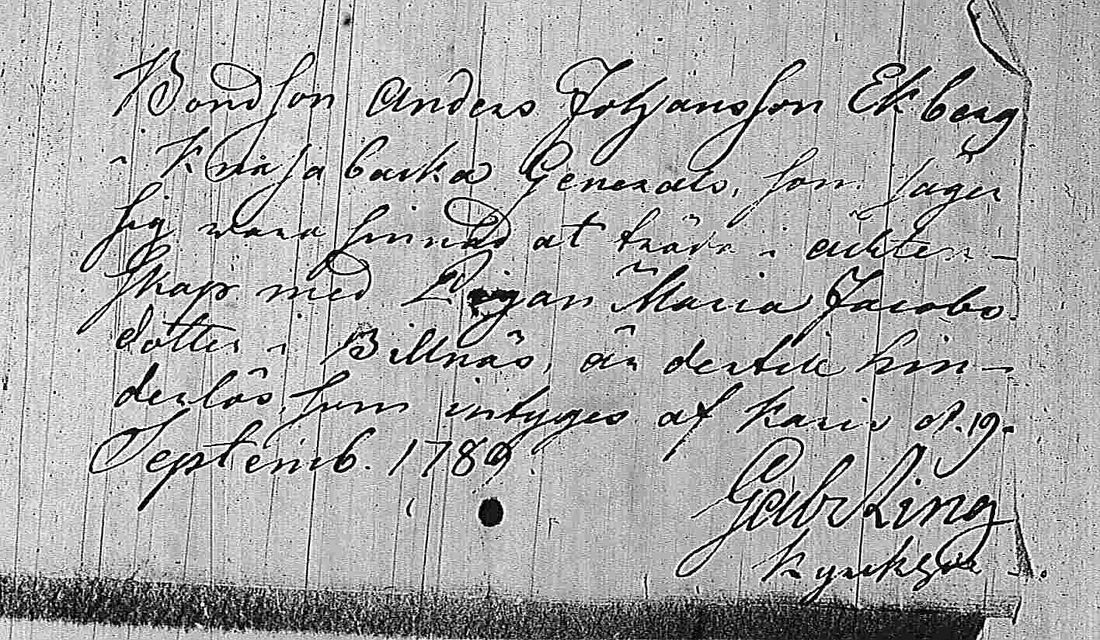 Bondson Anders Johansson Ekberg
i Knisabacka Generals, som säger
sig wara sinnad at träda i ächten-
skap med Pigan Maria Jacobs
dotter i Billnäs, är dertil hin-
derlös, som intyges af Karis d. 19.
Septemb. 1789.
Gabr Ring